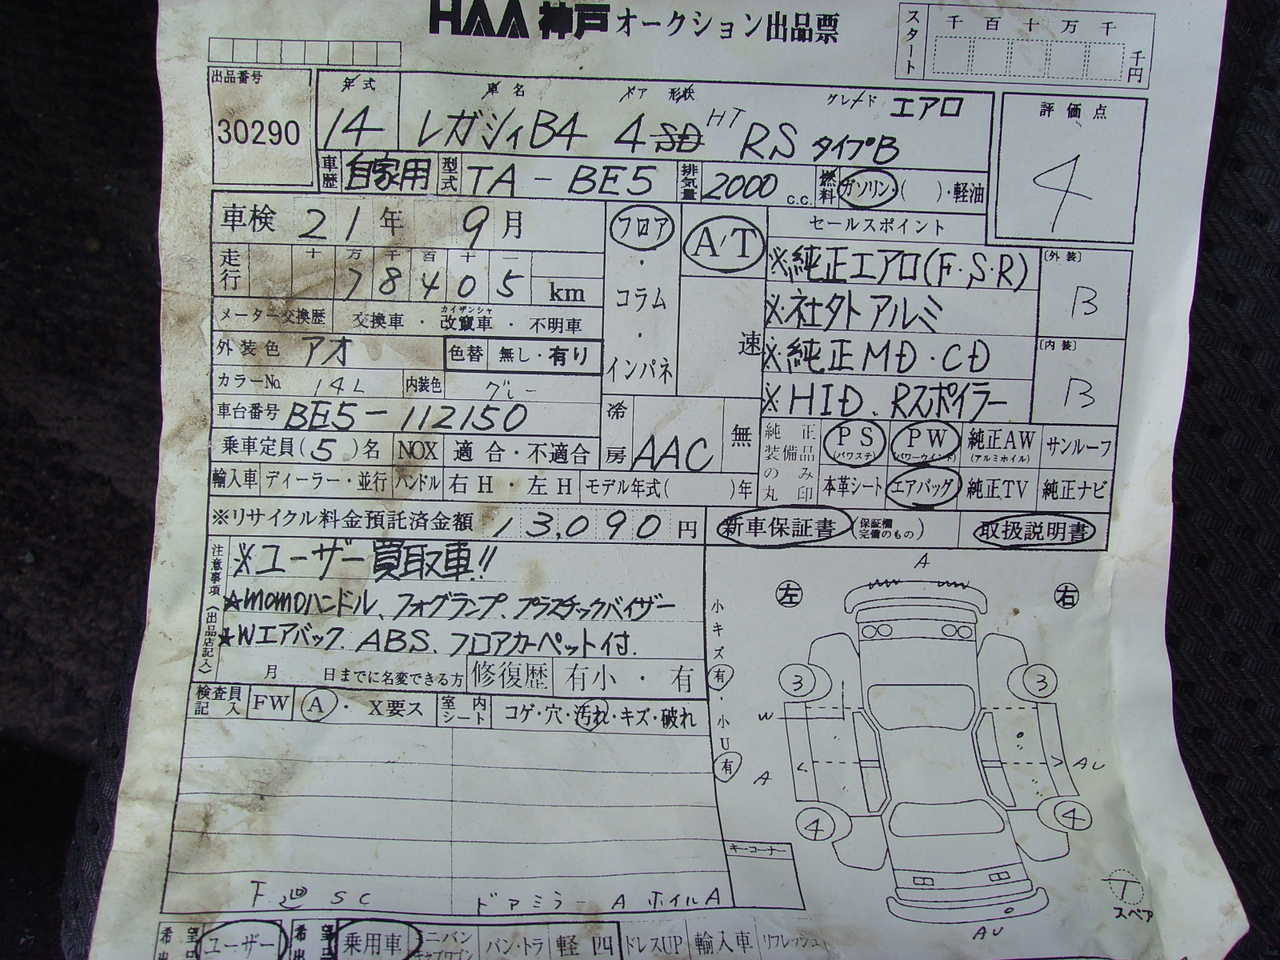 HAA神戸オークション出品票
スタート 千 百 十 万 千 千円
出品番号 30290
年式 14 車名 レガシィB4 ドア 形状 4SD HT グレード RS タイプB エアロ
評価点 4
車歴 自家用 型式 TA-BE5 排気量 2000 c.c. 燃料 ガソリン・( )・軽油
車検 21年 9月
走行 十 万 千 百 十 一 78405 km
メーター交換歴 交換車・改竄車・不明車 カイザンシャ
外装色 アオ 色替 無し・有り
カラーNo. 14L 内装色 グレー
車台番号 BE5-112150
乗車定員(5)名 NOX 適合・不適合
フロア・コラム・インパネ
A/T 速
冷房 AAC 無
セールスポイント
※純正エアロ(F・S・R)
※社外アルミ
※純正MD・CD
※HID、Rスポイラー
〔外装〕 B
〔内装〕 B
純正装備品のみ丸印 PS (パワステ) PW (パワーウインド) 純正AW (アルミホイル) サンルーフ
本革シート エアバッグ 純正TV 純正ナビ
輸入車 ディーラー・並行 ハンドル 右H・左H モデル年式( )年
※リサイクル料金預託済金額 13,090円 新車保証書 (保証欄完備のもの) 取扱説明書
注意事項(出品店記入)
※ユーザー買取車!!
★momoハンドル、フォグランプ、プラスチックバイザー
★Wエアバック、ABS、フロアカーペット付.
月 日までに名変できる方 修復歴 有小・有
検査員記入 FW A・X要ス 室内シート コゲ・穴・汚れ・キズ・破れ
小キズ有・小U有
左 右
A
3 3
W
A
AU
4 4
AU
キーコーナー
T
スペア
F廻 SC ドアミラー A ホイルA
ユーザー 乗用車 ミニバン バン・トラ 軽四 ドレスUP 輸入車 リフレッシュ